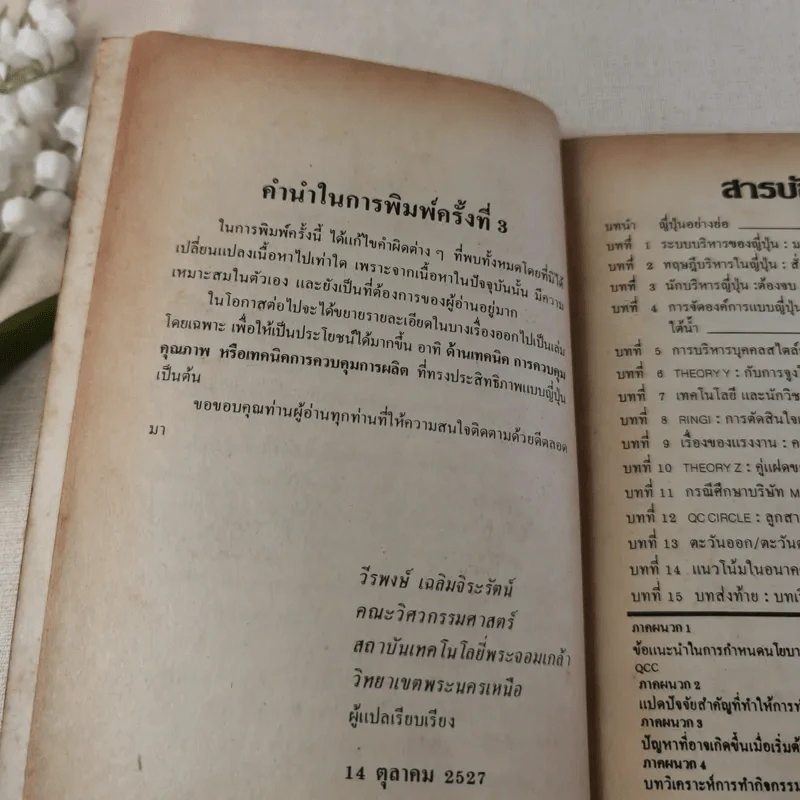 คำนำในการพิมพ์ครั้งที่ 3
ในการพิมพ์ครั้งนี้ ได้แก้ไขคำผิดต่าง ๆ ที่พบทั้งหมดโดยที่มิได้
เปลี่ยนแปลงเนื้อหาไปเท่าใด เพราะจากเนื้อหาในปัจจุบันนั้น มีความ
เหมาะสมในตัวเอง และยังเป็นที่ต้องการของผู้อ่านอยู่มาก
ในโอกาสต่อไปจะได้ขยายรายละเอียดในบางเรื่องออกไปเป็นเล่ม
โดยเฉพาะ เพื่อให้เป็นประโยชน์ได้มากขึ้น อาทิ ด้านเทคนิค การควบคุม
คุณภาพ หรือเทคนิคการควบคุมการผลิต ที่ทรงประสิทธิภาพแบบญี่ปุ่น
เป็นต้น
ขอขอบคุณท่านผู้อ่านทุกท่านที่ให้ความสนใจติดตามด้วยดีตลอด
มา
วีรพงษ์ เฉลิมจิระรัตน์
คณะวิศวกรรมศาสตร์
สถาบันเทคโนโลยี่พระจอมเกล้า
วิทยาเขตพระนครเหนือ
ผู้แปลเรียบเรียง
14 ตุลาคม 2527
สารบั
บทนำ ญี่ปุ่นอย่างย่อ
บทที่ 1 ระบบบริหารของญี่ปุ่น :
บทที่ 2 ทฤษฎีบริหารในญี่ปุ่น :
บทที่ 3 นักบริหารญี่ปุ่น :ต้องจบ
บทที่ 4 การจัดองค์การแบบญี่ปุ่น
ใต้น้ำ
บทที่ 5 การบริหารบุคคลสไตล์
บทที่ 6 THEORY Y : กับการจูงใ
บทที่ 7 เทคโนโลยี และนักวิช
บทที่ 8 RINGI : การตัดสินใจ
บทที่ 9 เรื่องของแรงงาน :
บทที่ 10 THEORY Z : คู่แฝด
บทที่ 11 กรณีศึกษาบริษัท M
บทที่ 12 QC CIRCLE : ลูกสา
บทที่ 13 ตะวันออก/ตะวัน
บทที่ 14 แนวโน้มในอนาค
บทที่ 15 บทส่งท้าย :
ภาคผนวก 1
ข้อแนะนำในการกำหนดนโยบา
QCC
ภาคผนวก 2
แปดปัจจัยสำคัญที่ทำให้การ
ภาคผนวก 3
ปัญหาที่อาจเกิดขึ้นเมื่อเริ่ม
ภาคผนวก 4
บทวิเคราะห์การทำกิจกรรม